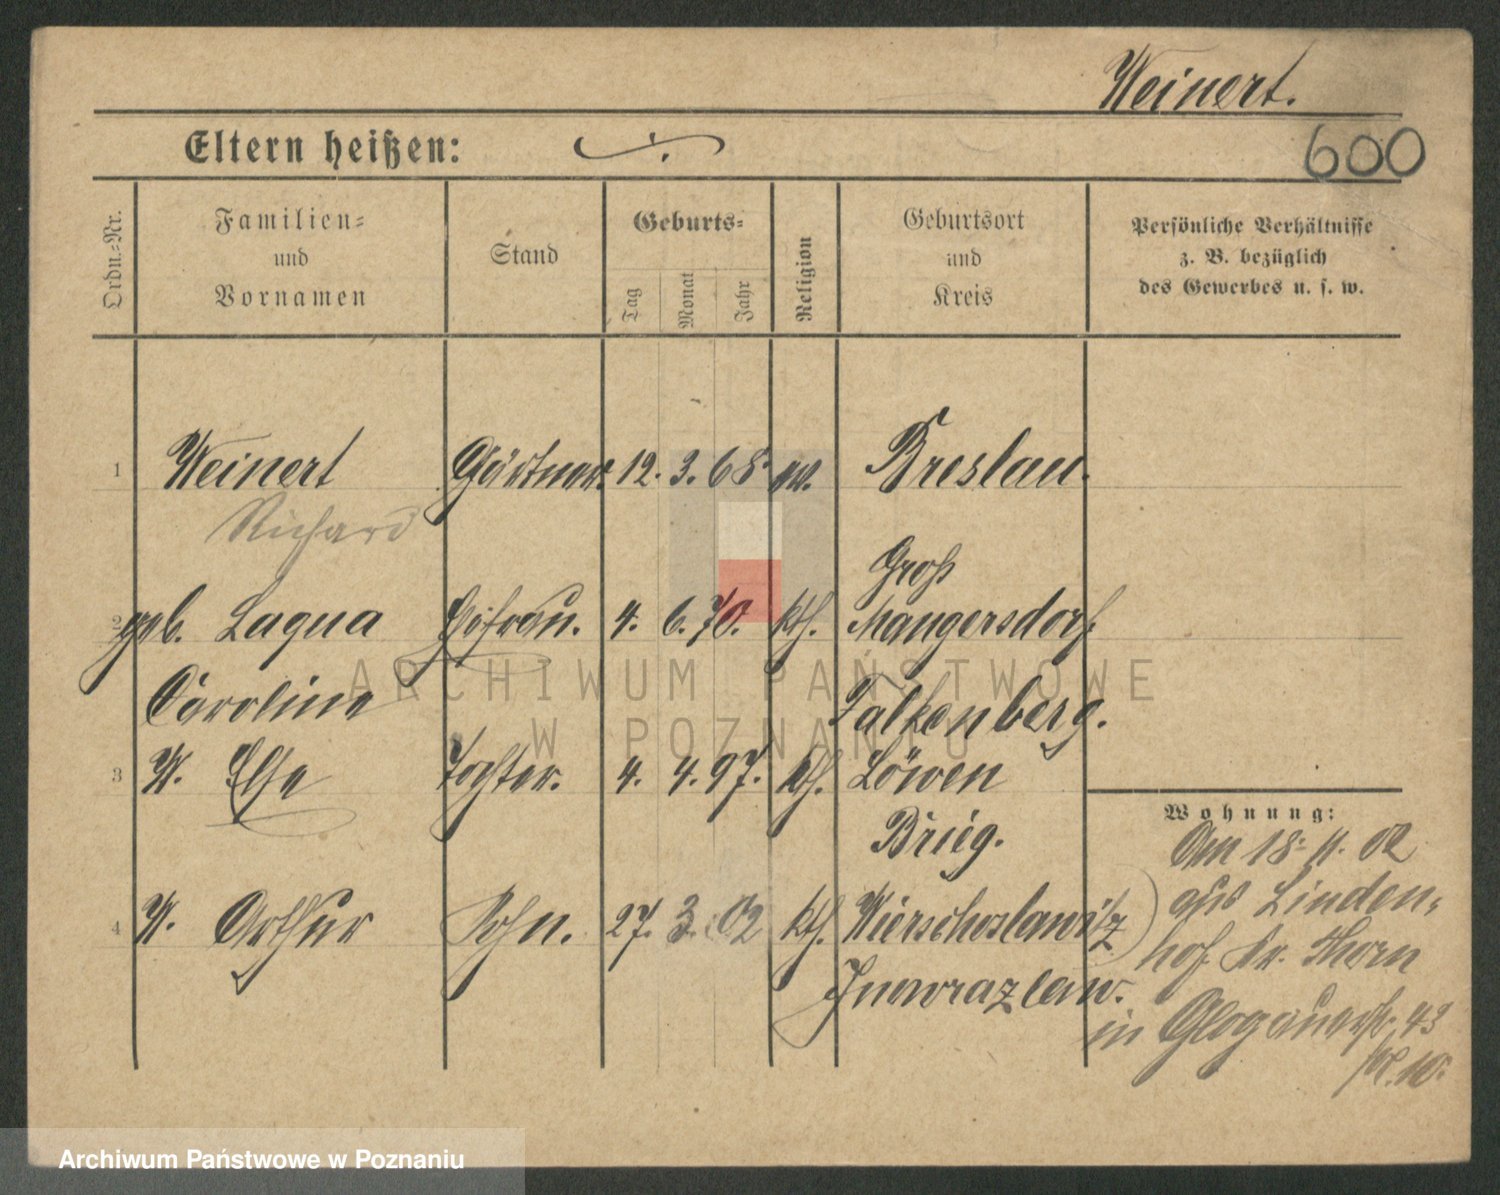 Weinert.
Eltern heißen: ./.
600
Ordn.-Nr.
Familien-
und
Vornamen
Stand
Geburts-
Tag
Monat
Jahr
Religion
Geburtsort
und
Kreis
Persönliche Verhältnisse
z. B. bezüglich
des Gewerbes u. s. w.
1 Weinert Gärtner. 12. 3. 68. ev. Breslau.
Richard
Groß
2 geb. Laqua Ehefrau. 4. 6. 70. kth. Mangersdorf
Caroline Falkenberg.
3 W. Else Tochter. 4. 4. 97. kth. Löwen
Brieg.
4 W. Arthur Sohn. 27. 3. 02 kth. Wierschoslawitz
Inowrazlaw.
Wohnung:
Am 18. 11. 02
aus Linden-
hof Kr. Thorn
in Glogauerstr. 43
10.
ARCHIWUM PAŃSTWOWE
W POZNANIU
Archiwum Państwowe w Poznaniu